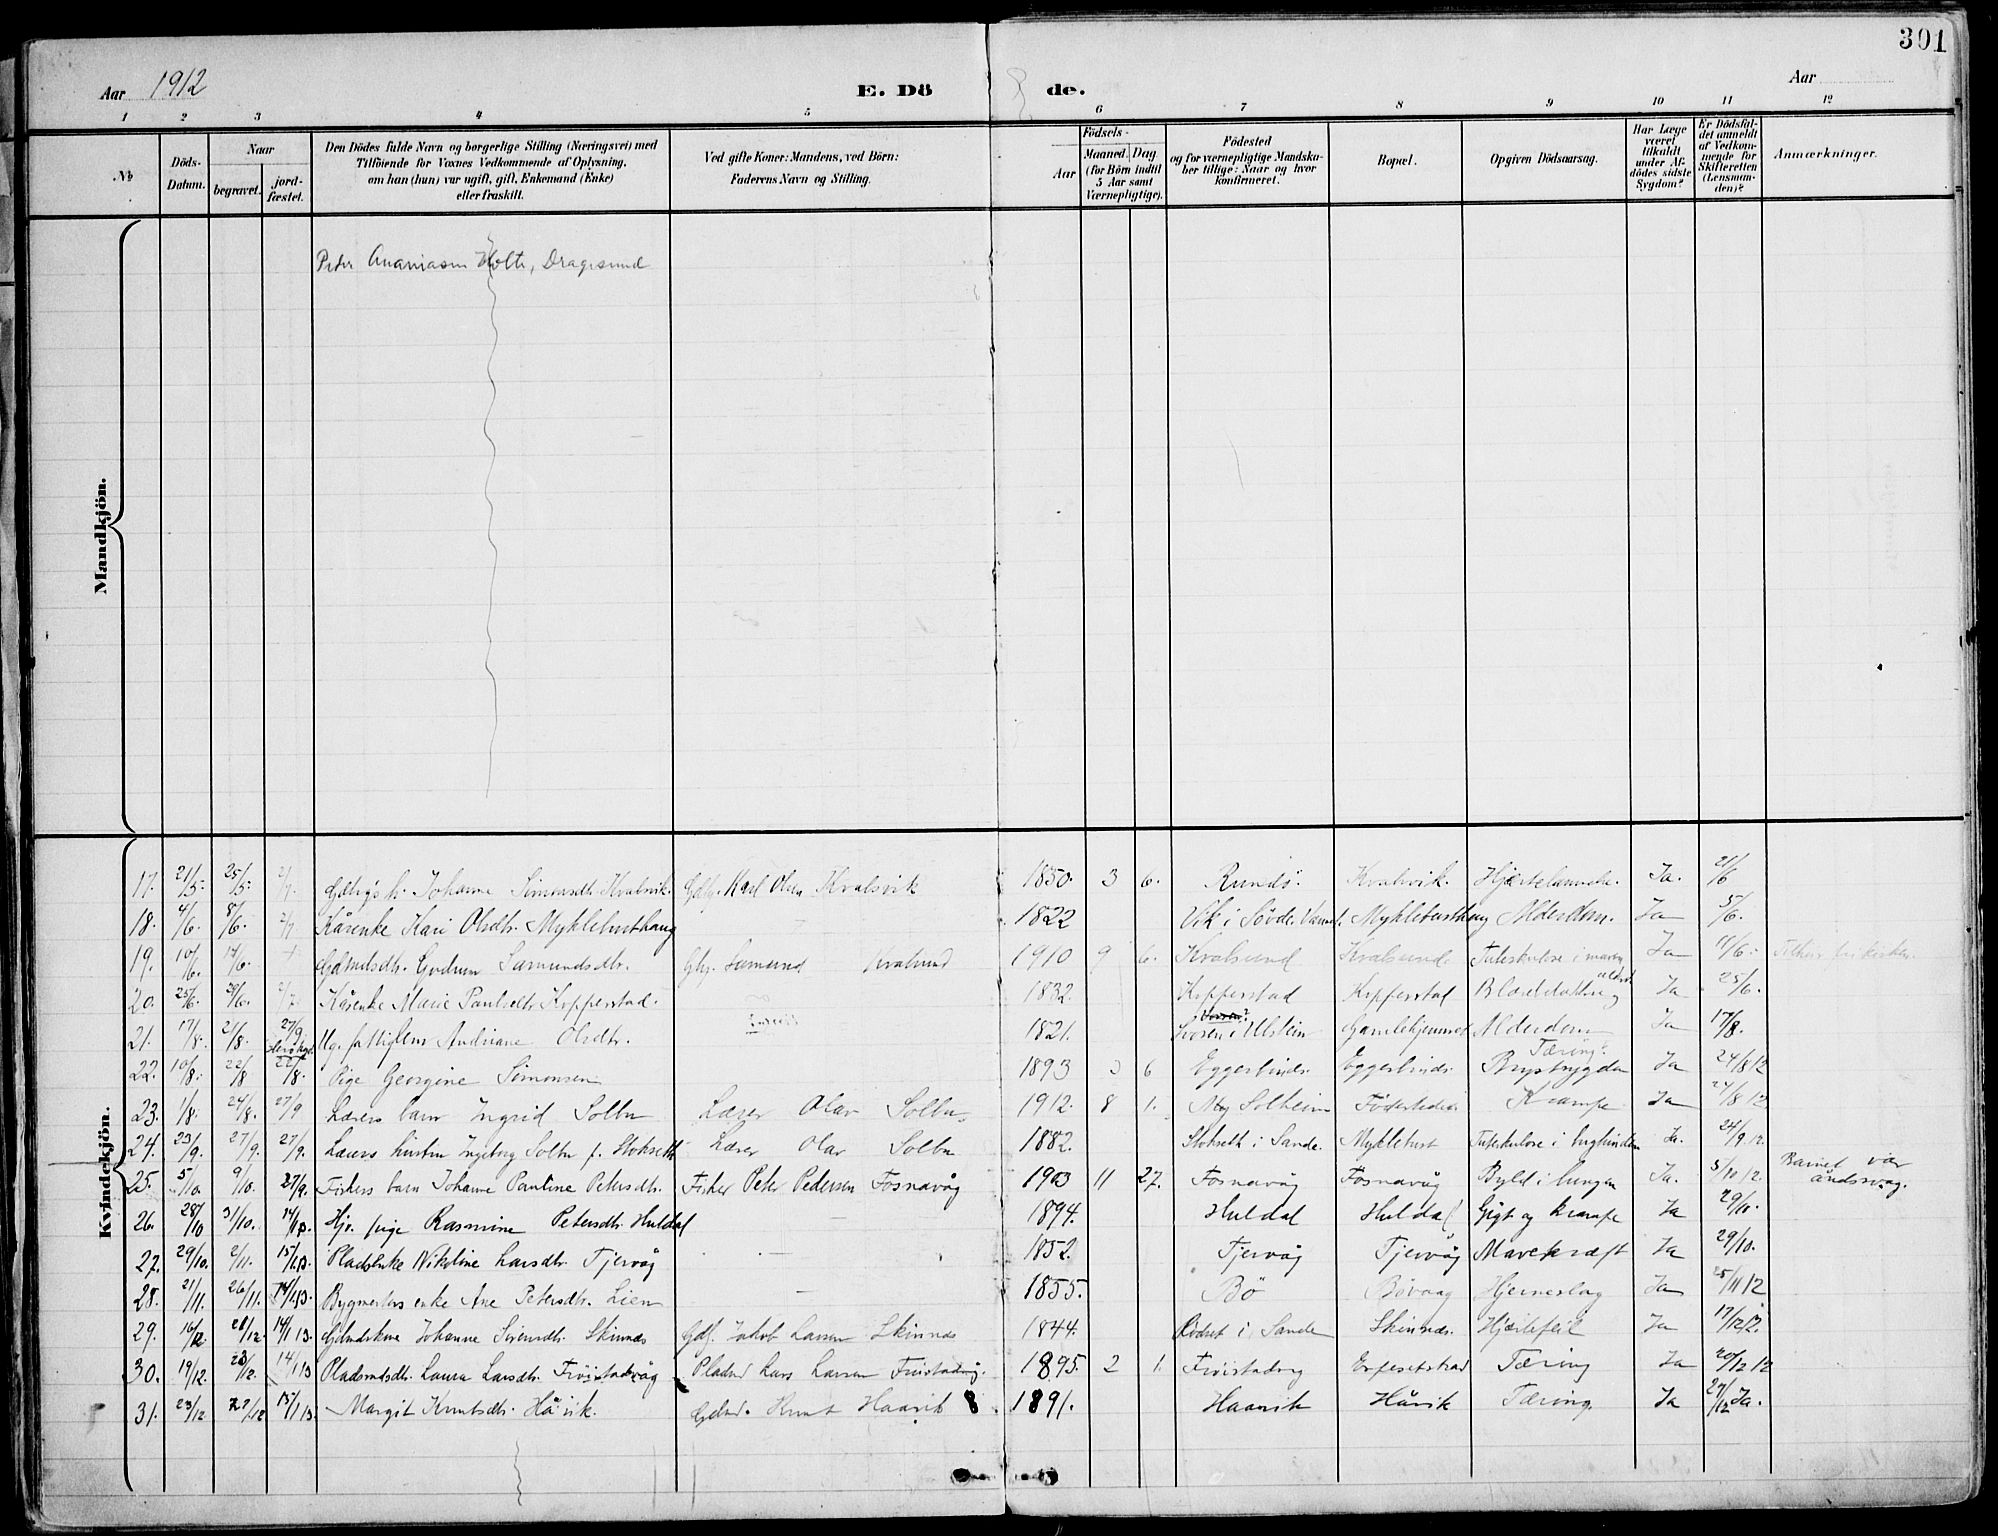 301
Aar 1912 E. Dö de. Aar
1 2 3 4 5 6 7 8 9 10 11 12
№
Döds-Datum.
Naar
begravet.
jord-fæstet.
Den Dödes fulde Navn og borgerlige Stilling (Næringsvei) med
Tilföiende for Voxnes Vedkommende af Oplysning,
om han (hun) var ugift, gift, Enkemand (Enke)
eller fraskilt.
Ved gifte Koner: Mandens, ved Börn:
Faderens Navn og Stilling.
Födsels-
Aar
Maaned. Dag
(for Börn indtil
5 Aar samt
Værnepligtige).
Födested
og for værnepligtige Mandska-
ber tillige: Naar og hvor
konfirmeret.
Bopæl.
Opgiven Dödsaarsag.
Har Læge
været
tilkaldt
under Af-
dödes sidste
Sygdom?
Er Dödsfal-
det anmeldt
af Vedkom-
mende for
Skifteretten
(Lensman-
den)?
Anmærkninger.
Mandkjön.
Peter Ananiasen Holte, Dragesund
Kvindekjön.
17. 21/5 25/5 2/7 Johanne Simonsdtr. Kvalsvik. Karl Olsen Kvalsvik 1850. 3 6. Rundö. Kvalsvik. Ja. 21/6
18. 4/6. 8/6. 2/7 Kårenke Kari Olsdtr. Myklebusthaug 1822 Vik i Søvde, Myklebusthaug Alderdom. Ja 5/6.
19. 10/6. 14/6. Gdmdsdtr. Gudrun Samundsdtr. Samund Kvalsund 1910 9 6. Kvalsund Kvalsund. Ja 11/6.
20. 25/6. 29/6. 2/7. Kårenke Marie Paulsdtr. Kopperstad. 1832. Kopperstad Kopperstad Ja 25/6.
21. 17/8. 21/8. 27/9. Ug. fattiglem Andriane Olsdtr. 1821. i Ulstein Gamlehjemmet Alderdom Ja 17/8.
22. 10/8. 22/8 22/8. Pige Georgine Simonsen 1893 3 6 Eggesbönes Eggesbönes Tæring? Brystsygdom Ja 24/8 12
23. 1/8. 24/8. 27/9 Lærers barn Ingrid Solbu Lærer Olav Solbu 1912. 8 1. Solheim Födestedet Krampe Ja 24/8 12
24. 23/9. 27/9. 27/9. Lærers hustru Ingeborg Solbu f. Stokseth Lærer Olav Solbu 1882. Stokseth i Sande. Myklebust Tuberkulose i Ja. 24/9 12.
25. 5/10. 9/10. 27/9. Fiskers barn Johanne Pauline Petersdtr. Fisker Peter Pedersen Fosnavåg 1903 11 27. Fosnavåg Fosnavåg Byld i lungen Ja. 5/10 12. Barnet var åndssvag.
26. 28/10 31/10. 14/1 13. pige Rasmine Petersdtr. Huldal 1894. Huldal Huldal Gigt og krampe Ja 29/10.
27. 29/10. 2/11. 15/1 13. Pladsenke Nikoline Larsdtr. Tjervåg 1852. Tjervåg Tjervåg Mavekræft Ja 29/10.
28. 21/11. 26/11. 14/1 13. Bygmesters enke Ane Petersdtr. Lien 1855. Bö Bövaag Hjerneslag Ja 25/11 12
29. 16/12 21/12. 14/1 13. Gdmdskone Johanne Sivertsdtr. Skinnes Gdf. Jakob Larsen Skinnes 1844. i Sande Skinnes. Hjertefeil Ja 17/12 12.
30. 19/12. 23/12. 14/1 13 Pladsmdsdtr. Laura Larsdtr. Fröistadvåg Pladsmd Lars Larsen Fröistadvåg. 1895. 2 1. Fröistadvåg Tæring Ja 20/12 12
31. 23/12 27/12 15/1 13. Margit Knutsdtr. Håvik. Gdmd. Knut Haavik 1891. Haavik Håvik Tæring. Ja 27/12 Ja.